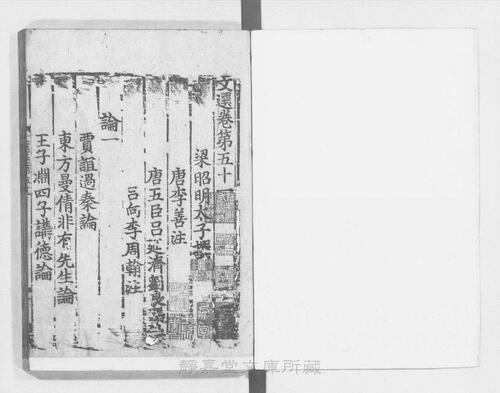 文選卷第五十
梁昭明太子撰
唐李善注
唐五臣呂延濟劉良張
呂向李周翰注
論一
賈誼過秦論
東方曼倩非有先生論
王子淵四子講德論
靜嘉堂文庫所藏